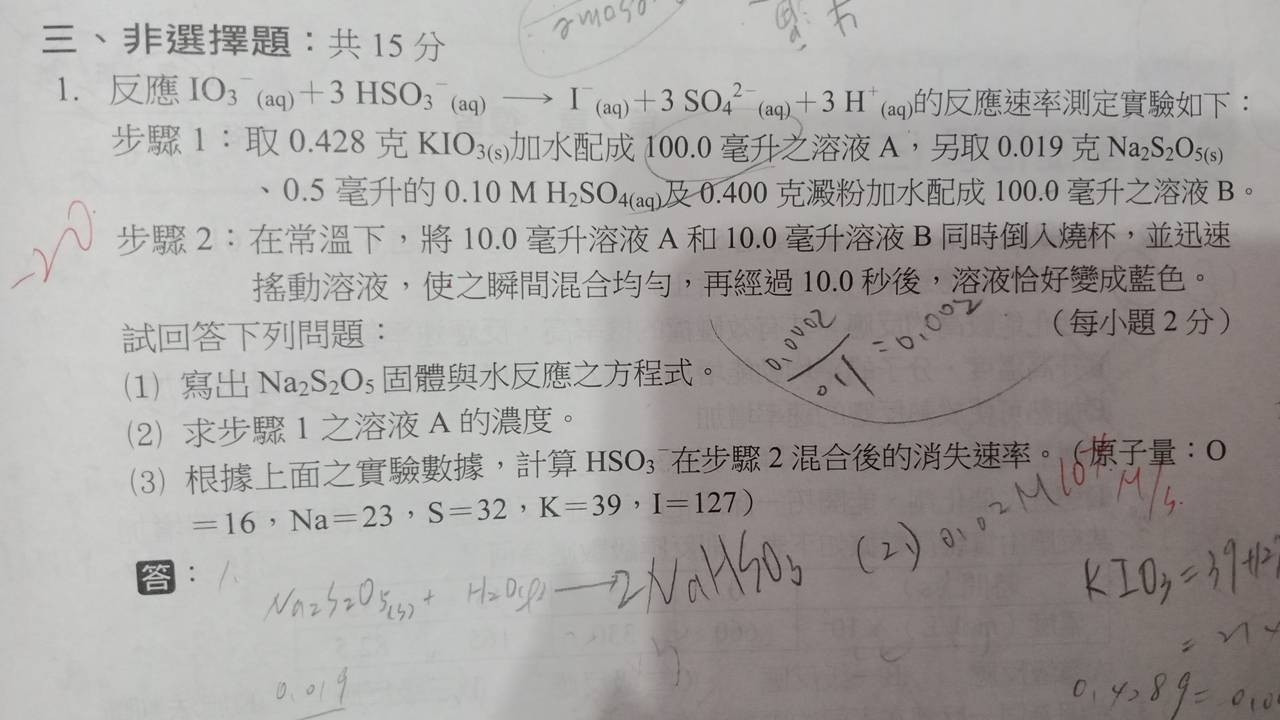 三、非選擇題：共 15 分
1. 反應 IO₃⁻(aq)＋3 HSO₃⁻(aq) ⟶ I⁻(aq)＋3 SO₄²⁻(aq)＋3 H⁺(aq)的反應速率測定實驗如下：
步驟 1：取 0.428 克 KIO₃(s)加水配成 100.0 毫升之溶液 A，另取 0.019 克 Na₂S₂O₅(s)
、0.5 毫升的 0.10 M H₂SO₄(aq)及 0.400 克澱粉加水配成 100.0 毫升之溶液 B。
步驟 2：在常溫下，將 10.0 毫升溶液 A 和 10.0 毫升溶液 B 同時倒入燒杯，並迅速
搖動溶液，使之瞬間混合均勻，再經過 10.0 秒後，溶液恰好變成藍色。
試回答下列問題： （每小題 2 分）
0.0002/0.1 = 0.002
(1) 寫出 Na₂S₂O₅ 固體與水反應之方程式。
(2) 求步驟 1 之溶液 A 的濃度。
(3) 根據上面之實驗數據，計算 HSO₃⁻在步驟 2 混合後的消失速率。（原子量：O
＝16，Na＝23，S＝32，K＝39，I＝127）
M/s.
答： 1.
Na₂S₂O₅(s) + H₂O(l) ⟶ 2NaHSO₃ (2.) 0.02 M
KIO₃ = 39+127
0.019